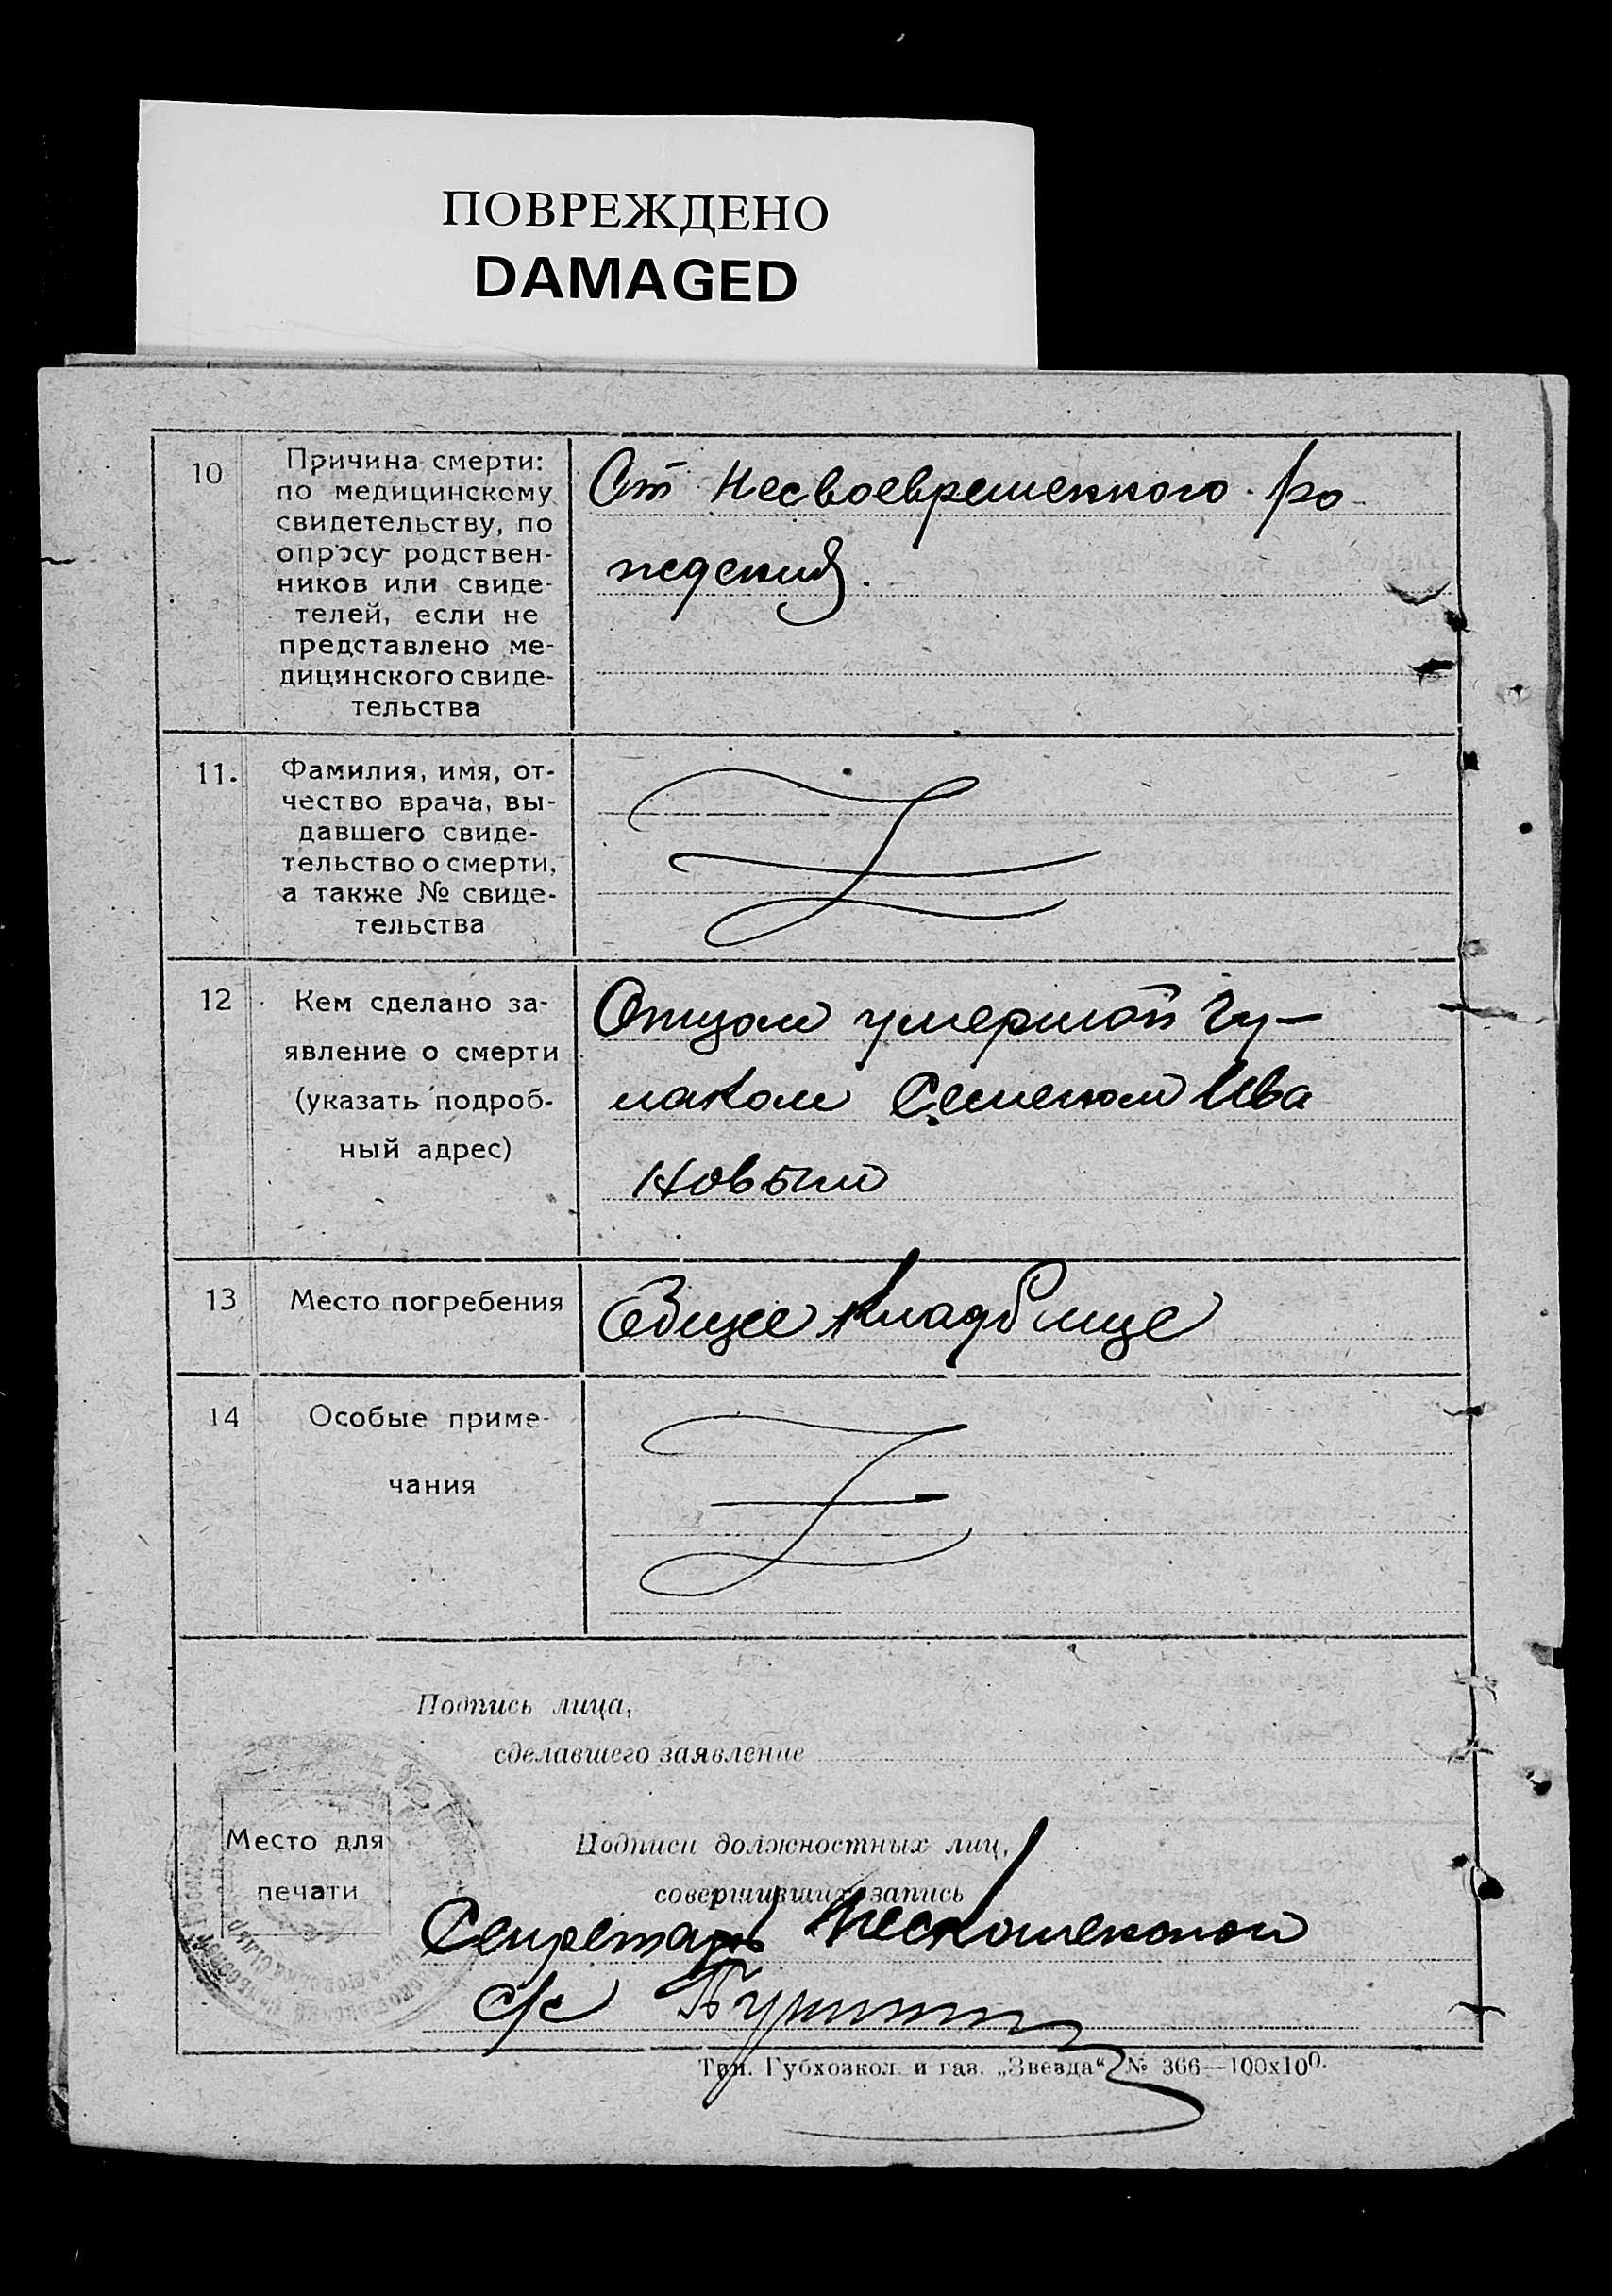 ПОВРЕЖДЕНО
DAMAGED
10 Причина смерти:
по медицинскому
свидетельству, по
опросу родствен-
ников или свиде-
телей, если не
представлено ме-
дицинского свиде-
тельства
От Несвоевременного ро
ждения.
11. Фамилия, имя, от-
чество врача, вы-
давшего свиде-
тельство о смерти,
а также № свиде-
тельства
12 Кем сделано за-
явление о смерти
(указать подроб-
ный адрес)
Отцом умершей Гу-
маком Семеном Ива
новым
13 Место погребения
Общее кладбище
14 Особые приме-
чания
Подпись лица,
сделавшего заявление
Место для
печати
Подписи должностных лиц,
совершивших запись
Секретарь
с/с
Тип. Губхозкол. и газ. „Звезда“ № 366—100х100.